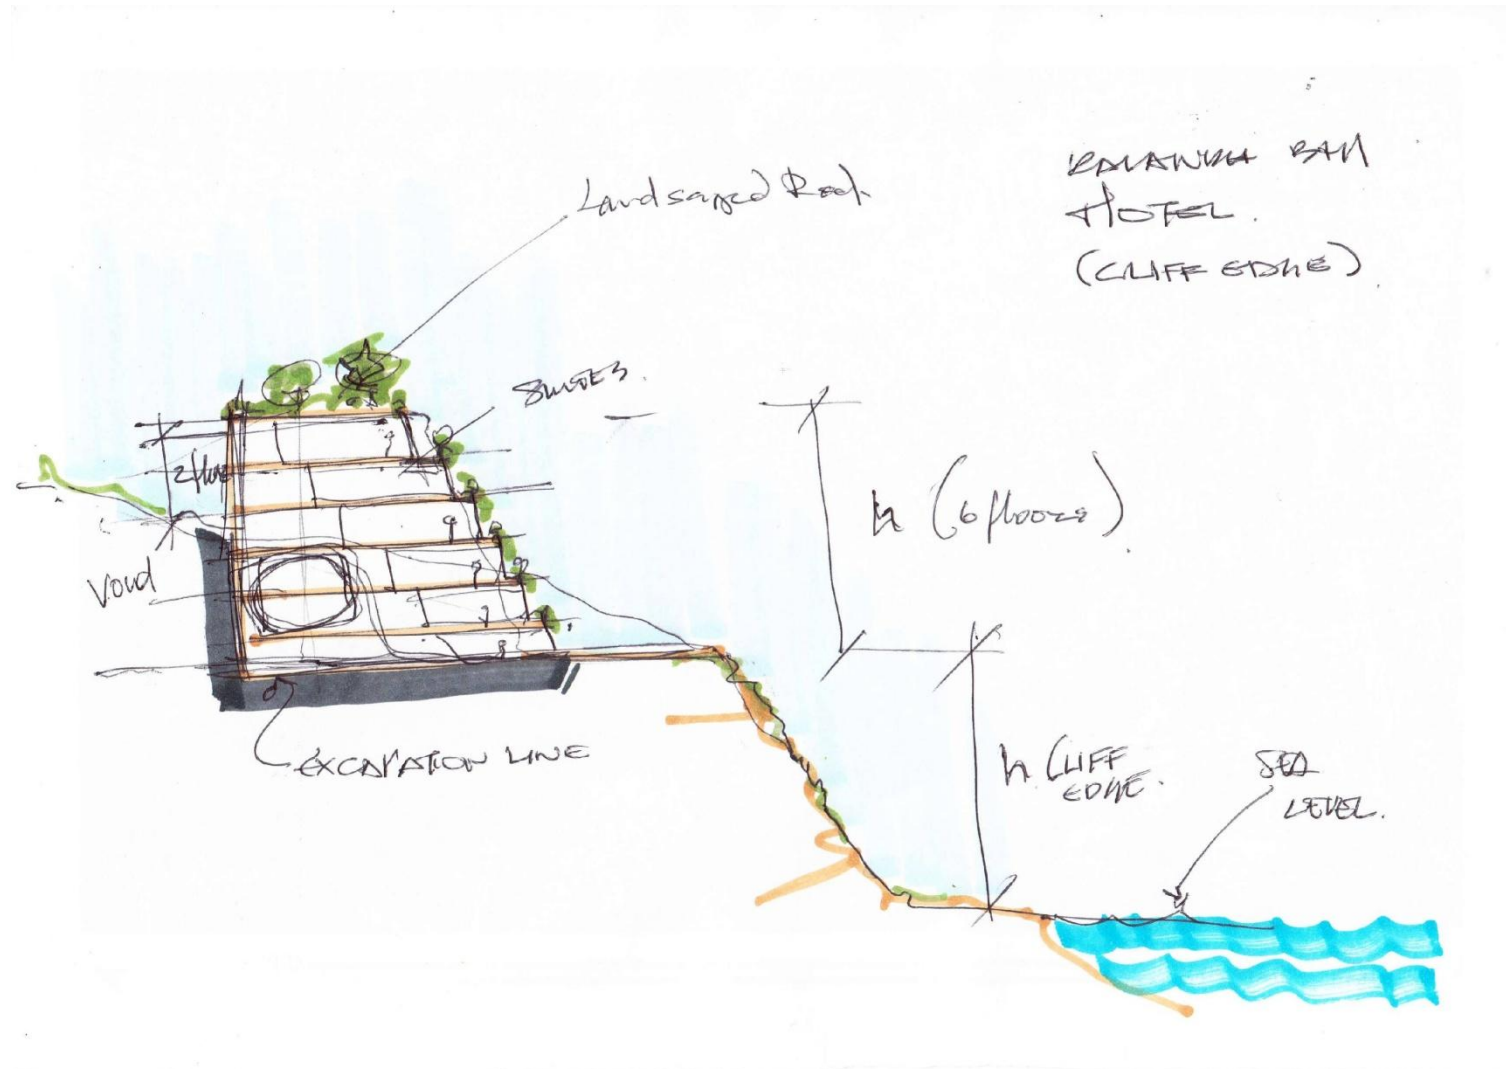 Landscaped Roof
KALANKA BAY
HOTEL.
(CLIFF EDGE)
SUITES.
2 floors
Void
h (6 floors)
EXCAVATION LINE
h CLIFF
EDGE.
SEA
LEVEL.